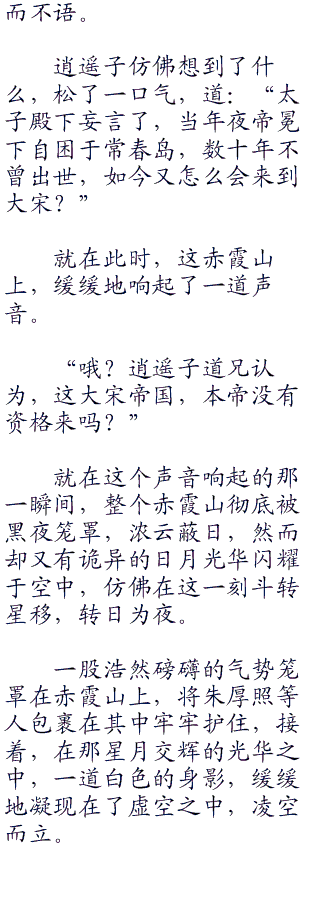 而不语。
逍遥子仿佛想到了什
么，松了一口气，道：“太
子殿下妄言了，当年夜帝冕
下自困于常春岛，数十年不
曾出世，如今又怎么会来到
大宋？”
就在此时，这赤霞山
上，缓缓地响起了一道声
音。
“哦？逍遥子道兄认
为，这大宋帝国，本帝没有
资格来吗？”
就在这个声音响起的那
一瞬间，整个赤霞山彻底被
黑夜笼罩，浓云蔽日，然而
却又有诡异的日月光华闪耀
于空中，仿佛在这一刻斗转
星移，转日为夜。
一股浩然磅礴的气势笼
罩在赤霞山上，将朱厚照等
人包裹在其中牢牢护住，接
着，在那星月交辉的光华之
中，一道白色的身影，缓缓
地凝现在了虚空之中，凌空
而立。